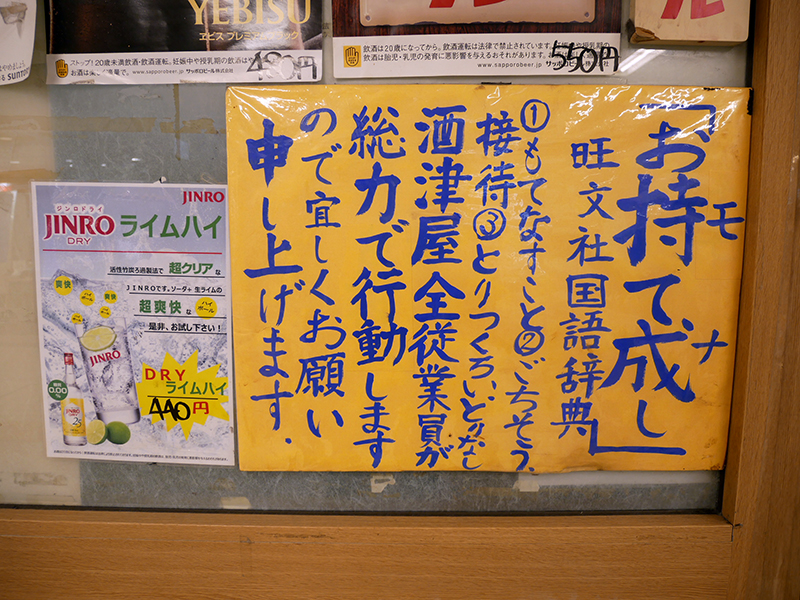 YEBISU
ヱビス プレミアムブラック
ストップ!20歳未満飲酒・飲酒運転。妊娠中や授乳期の飲酒はや
www.sapporobeer.jp サッポロビール株式会社
480円
飲酒は20歳になってから。飲酒運転は法律で禁止されています。妊娠中や授乳期の
飲酒は胎児・乳児の発育に悪影響を与えるおそれがあります。
www.sapporobeer.jp サッポロビール株式会社
550円
「お持て成し」
モ
ナ
旺文社国語辞典
①もてなすこと②ごちそう、
接待③とりつくろい、とりなし
酒津屋全従業員が
総力で行動します
ので宜しくお願い
申し上げます.
JINRO
ジンロドライ
JINRO
DRY
ライムハイ
活性竹炭ろ過製法で 超クリアな
JINROです。ソーダ+生ライムの
超爽快な ハイボール
是非、お試し下さい!
爽快
ハイボール
爽快
ハイボール
JINRO
糖質
0.00
JINRO
25
DRY
ライムハイ
440円